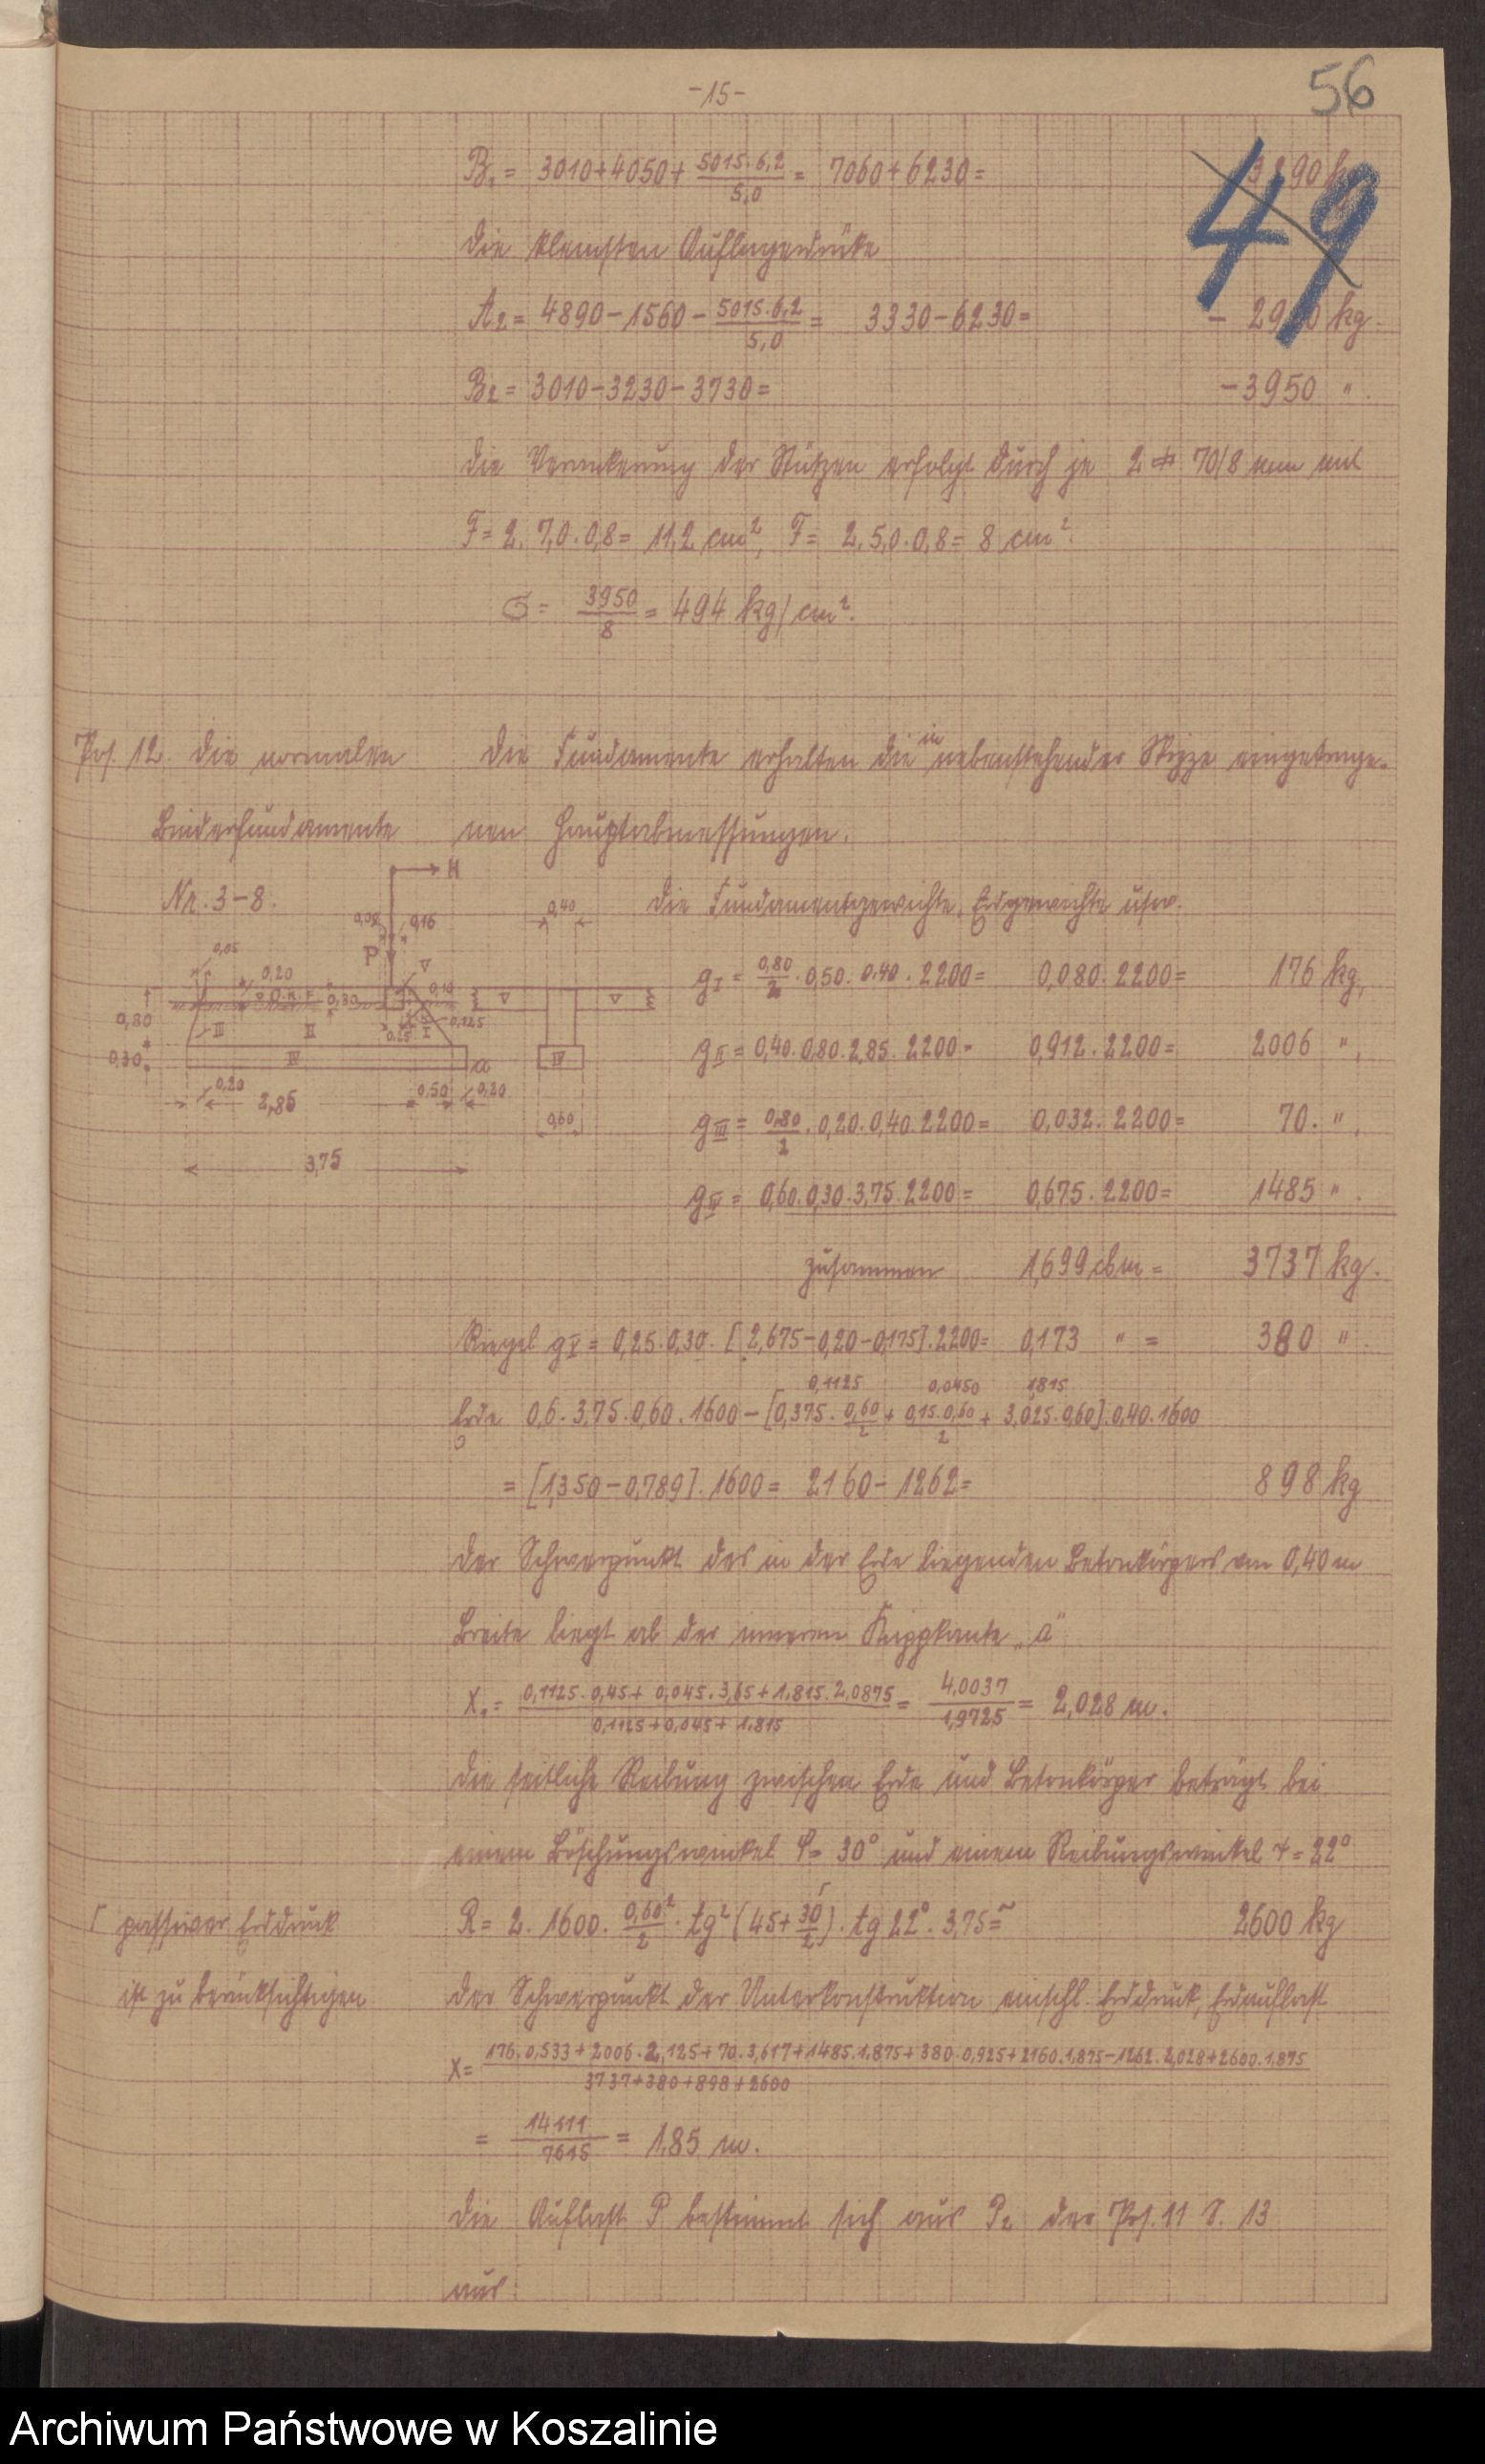 -15-
56
49
B₁ = 3010+4050+ 5015·6,2 / 5,0 = 7060+6230=
die kleinsten Auflagerdrücke
A₂ = 4890-1560- 5015·6,2 / 5,0 = 3330-6230= - 29 0 kg.
B₂ = 3010-3230-3730= -3950 "
Die Verankerung der Stützen erfolgt durch je 2 70/8 mm mit
F= 2. 7,0·0,8= 11,2 cm², F= 2.5,0·0,8= 8 cm².
σ= 3950 / 8 = 494 kg/cm².
Pos. 12. Die normalen
Binderfundamente
Nr. 3-8.
Die Fundamente erhalten die in nebenstehender Skizze eingetrage-
nen Hauptabmessungen.
H
0,09 0,16
P
0,05
0,20
V
0,10
0,30
0,80
0,30
III II I
0,25 0,125
IV
a
0,20
2,85
0,50 0,20
3,75
0,40
V V
IV
0,60
Die Fundamentgewichte, Erdgewichte usw.
g I = 0,80 / 2 · 0,50 · 0,40 · 2200= 0,080·2200= 176 kg,
g II = 0,40·0,80·2,85·2200= 0,912·2200= 2006 ",
g III = 0,80 / 2 · 0,20·0,40·2200= 0,032·2200= 70. ",
g IV = 0,60·0,30·3,75·2200= 0,675·2200= 1485 ".
zusammen 1,699 cbm = 3737 kg.
Riegel g V = 0,25·0,30·[2,675-0,20-0,175]·2200= 0,173 " = 380 ".
0,1125 0,0450 1,815
Erde 0,6·3,75·0,60·1600-[0,375· 0,60 / 2 + 0,15·0,60 / 2 + 3,025·0,60]·0,40·1600
= [1,350-0,789]·1600= 2160-1262= 898 kg
Der Schwerpunkt des in der Erde liegenden Betonkörpers von 0,40 m
Breite liegt ab der inneren Kippkante „a"
X₁ = 0,1125·0,45+0,045·3,65+1,815·2,0875 / 0,1125+0,045+1,815 = 4,0037 / 1,9725 = 2,028 m.
Die seitliche Reibung zwischen Erde und Betonkörper beträgt bei
einem Böschungswinkel φ= 30° und einem Reibungswinkel = 22°
Γ passiver Erddruck
ist zu berücksichtigen
R= 2·1600· 0,60² / 2 · tg² (45+ 30 / 2)· tg 22°·3,75=~ 2600 kg
Der Schwerpunkt der Unterkonstruktion einschl. Erddruck, Erdauflast
X= 176·0,533+2006·2,125+70·3,617+1485·1,875+380·0,925+2160·1,875-1262·2,028+2600·1,875 / 3737+380+898+2600
= 14111 / 7615 = 1,85 m.
Die Auflast P bestimmt sich aus P₂ der Pos. 11 S. 13
aus:
Archiwum Państwowe w Koszalinie